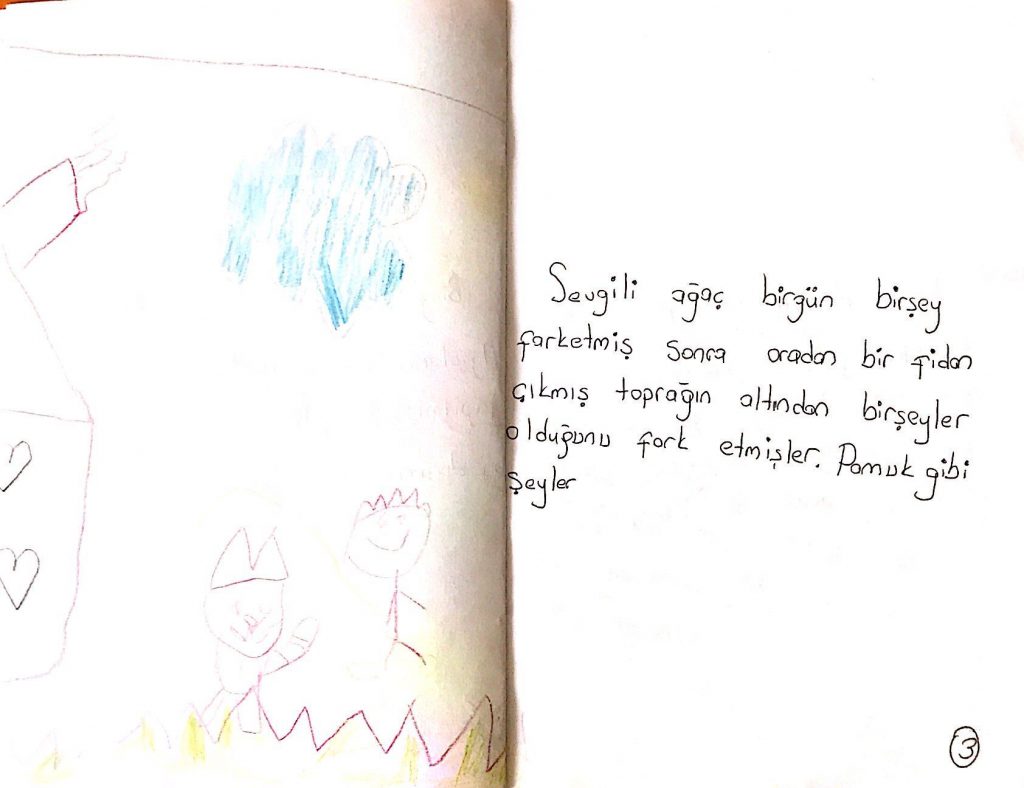 Sevgili ağaç birgün birşey
farketmiş sonra oradan bir fidan
çıkmış toprağın altından birşeyler
olduğunu fark etmişler. Pamuk gibi
şeyler
3